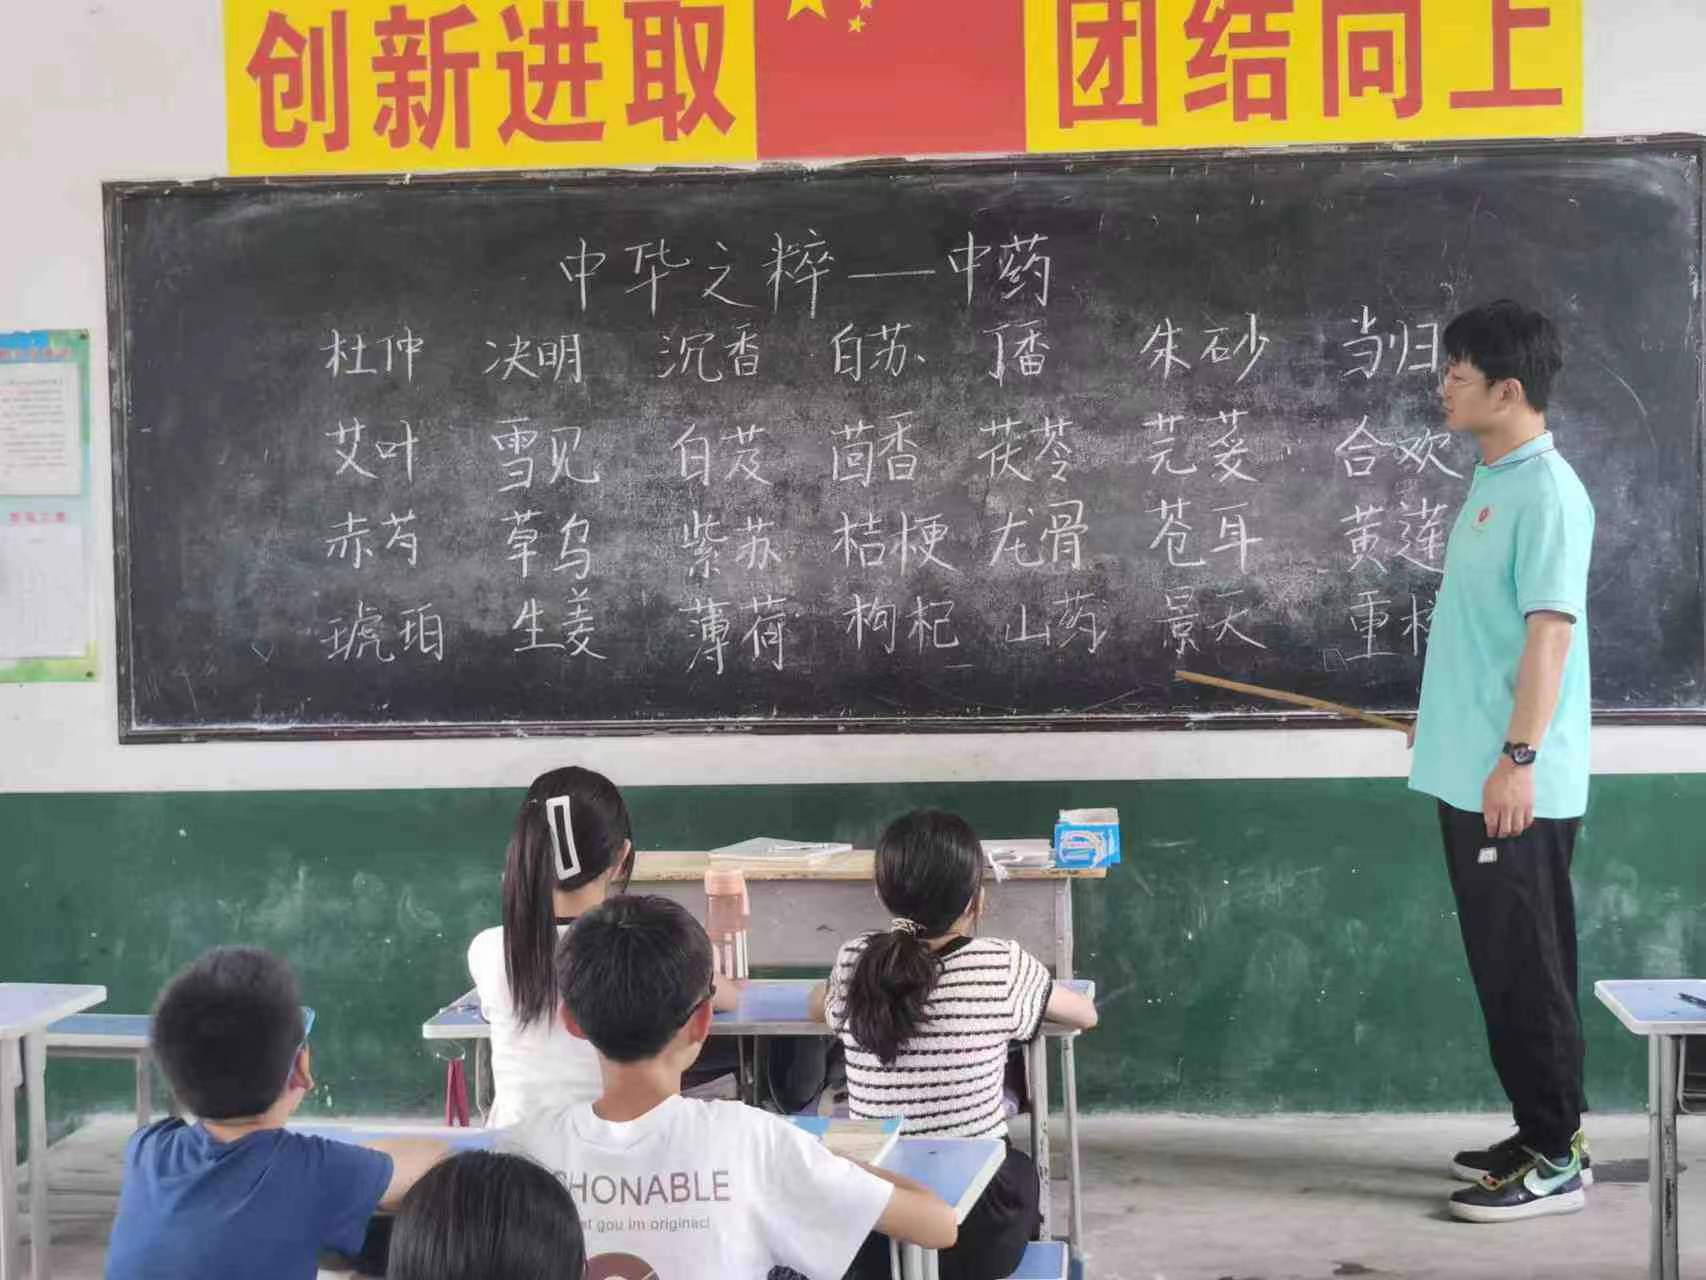 创新进取 团结向上
中华之粹——中药
杜仲 决明 沉香 自苏 丁香 朱砂 当归
艾叶 雪见 白芨 茴香 茯苓 芫荽 合欢
赤芍 草乌 紫苏 桔梗 龙骨 苍耳 黄莲
琥珀 生姜 薄荷 枸杞 山药 景天 重
HONABLE
et gou im originacl